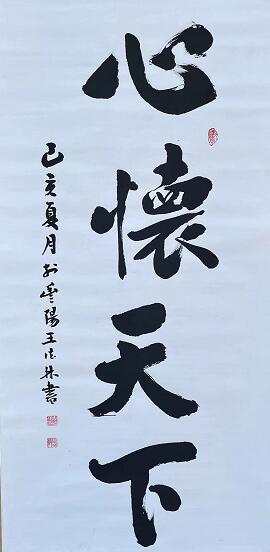 心懷天下
己亥夏月於豐陽王法林書